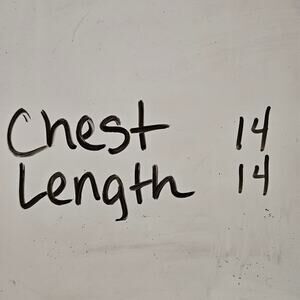 Chest 14
Length 14